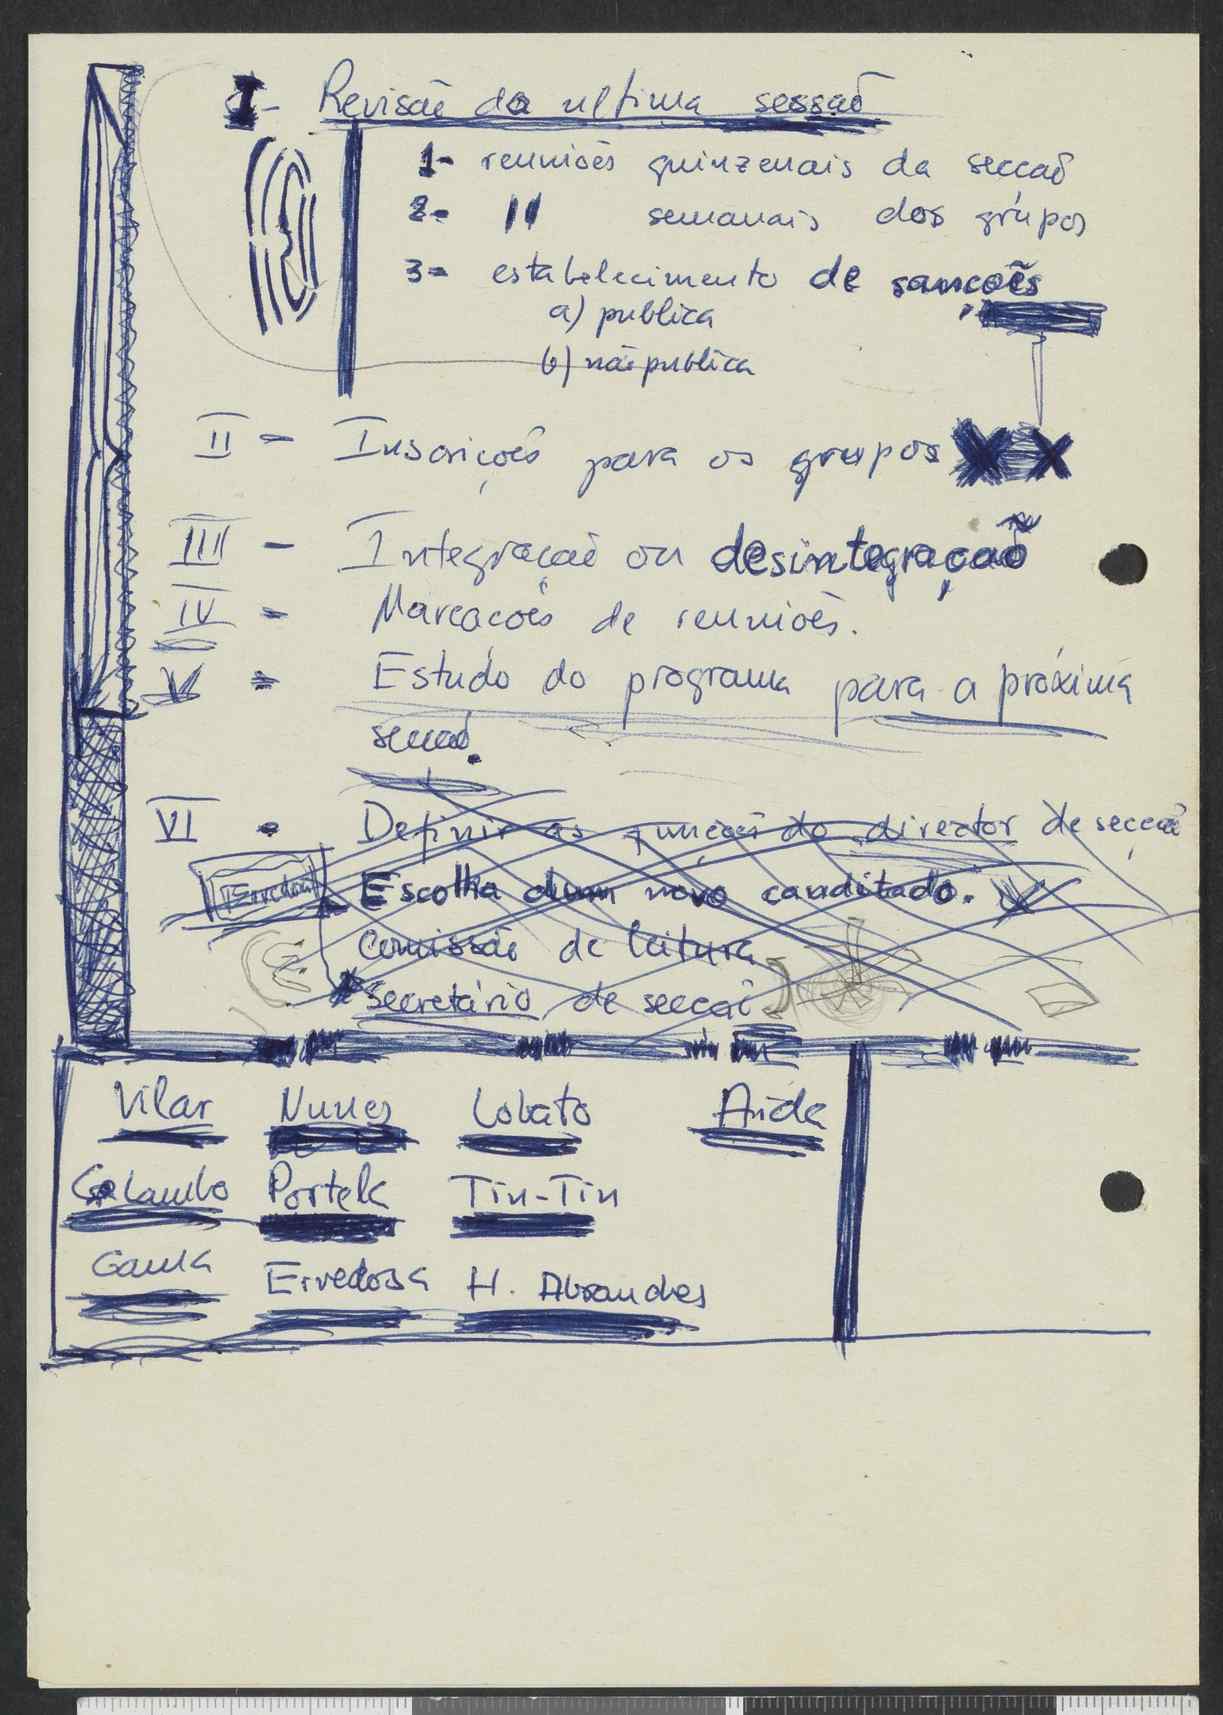 I - Revisão da ultima sessaõ
1- reuniões quinzenais da seccaõ
2- " semanais dos grupos
3- estabelecimento de sancoẽs
a) publica
b) não publica
II - Inscriçoẽs para os grupos
III - Integraçaõ ou desintegraçaõ
IV - Marcacoẽs de reunioẽs.
V - Estudo do programa para a próxima
seccaõ.
VI - Definir as funçoẽs do director de secçaõ
Ervedosa
Escolha dum novo canditado.
Comissão de leitura
Secretário de seccaõ
Vilar Nunes Lobato Aida
Calambo Portela Tin-Tin
Gama Ervedosa H. Abranches